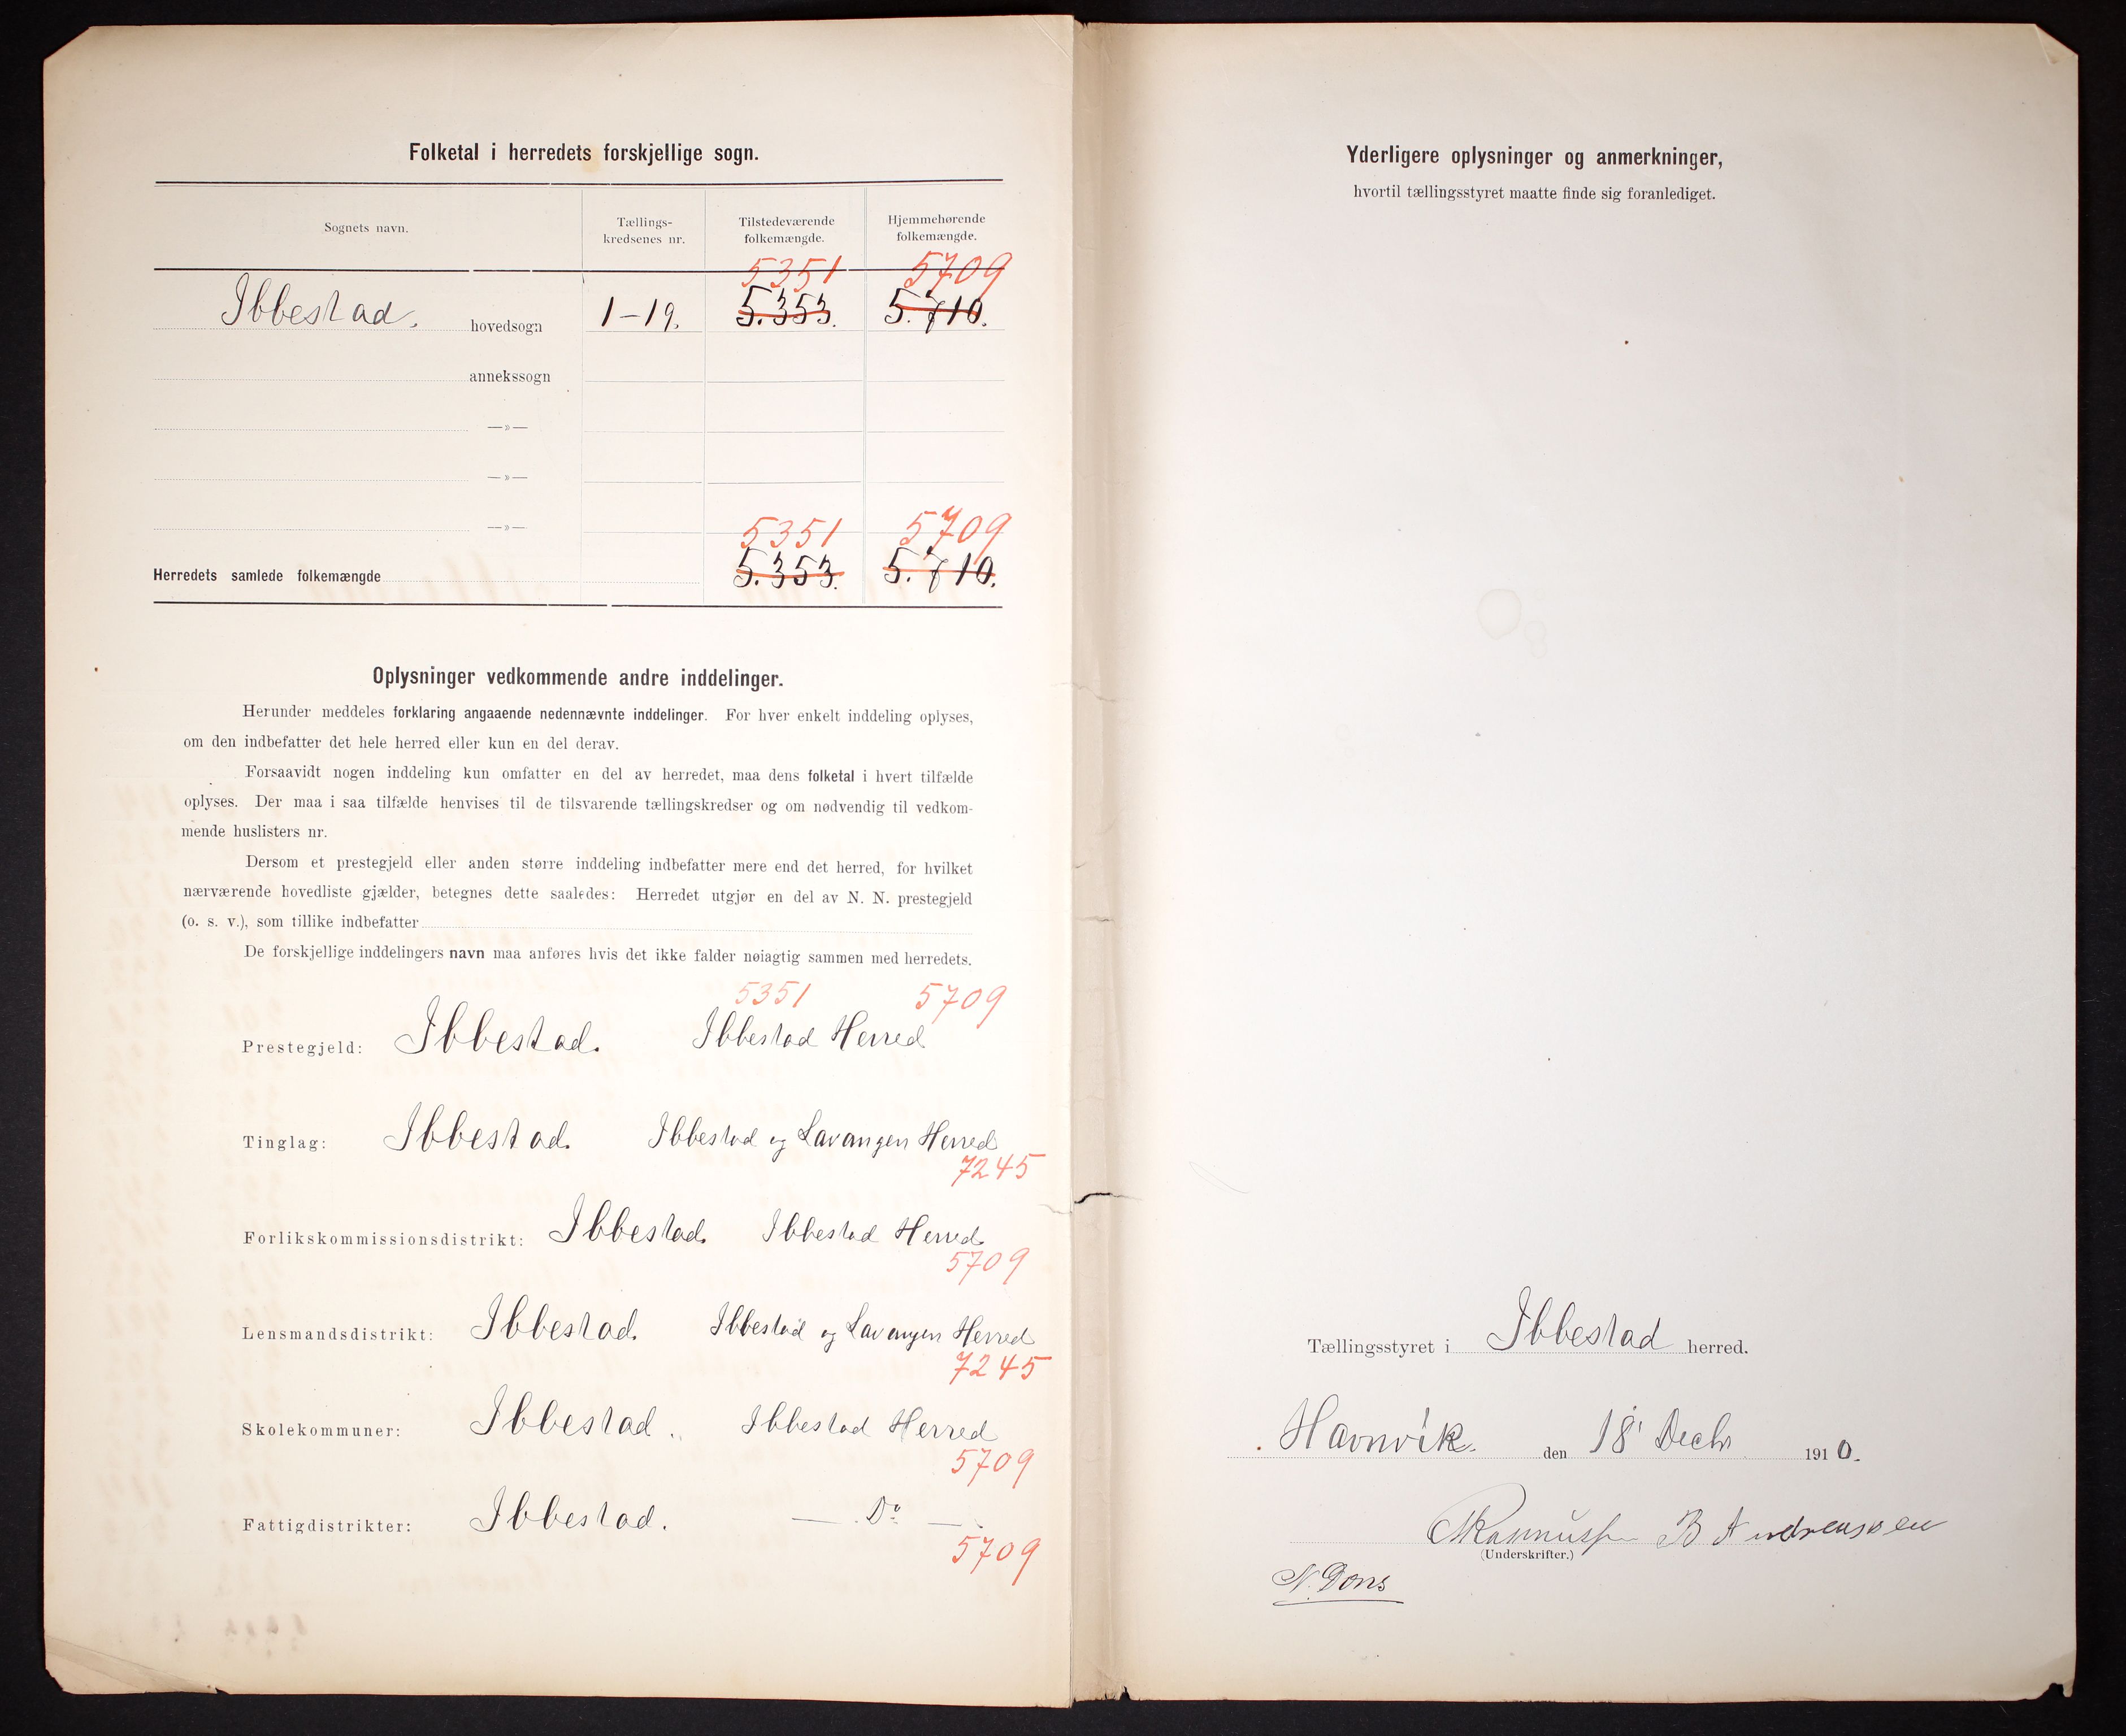 Folketal i herredets forskjellige sogn.
Sognets navn.
Tællings-
kredsenes nr.
Tilstedeværende
folkemængde.
Hjemmehørende
folkemængde.
5351 5709
Ibbestad. hovedsogn 1-19. 5.353. 5.710.
annekssogn
—»—
—»—
—»—
5351 5709
Herredets samlede folkemængde 5.353. 5.710.
Oplysninger vedkommende andre inddelinger.
Herunder meddeles forklaring angaaende nedennævnte inddelinger. For hver enkelt inddeling oplyses,
om den indbefatter det hele herred eller kun en del derav.
Forsaavidt nogen inddeling kun omfatter en del av herredet, maa dens folketal i hvert tilfælde
oplyses. Der maa i saa tilfælde henvises til de tilsvarende tællingskredser og om nødvendig til vedkom-
mende huslisters nr.
Dersom et prestegjeld eller anden større inddeling indbefatter mere end det herred, for hvilket
nærværende hovedliste gjælder, betegnes dette saaledes: Herredet utgjør en del av N. N. prestegjeld
(o. s. v.), som tillike indbefatter
De forskjellige inddelingers navn maa anføres hvis det ikke falder nøiagtig sammen med herredets.
5351 5709
Prestegjeld: Ibbestad. Ibbestad Herred
Tinglag: Ibbestad. Ibbestad og Lavangen Herred
7245
Forlikskommissionsdistrikt: Ibbestad. Ibbestad Herred
5709
Lensmandsdistrikt: Ibbestad. Ibbestad og Lavangen Herred
7245
Skolekommuner: Ibbestad. Ibbestad Herred
5709
Fattigdistrikter: Ibbestad. — Do —
5709
Yderligere oplysninger og anmerkninger,
hvortil tællingsstyret maatte finde sig foranlediget.
Tællingsstyret i Ibbestad herred.
Havnvik. den 18 Decbr 1910.
Rasmussen B Andreassen
(Underskrifter.)
N. Dons